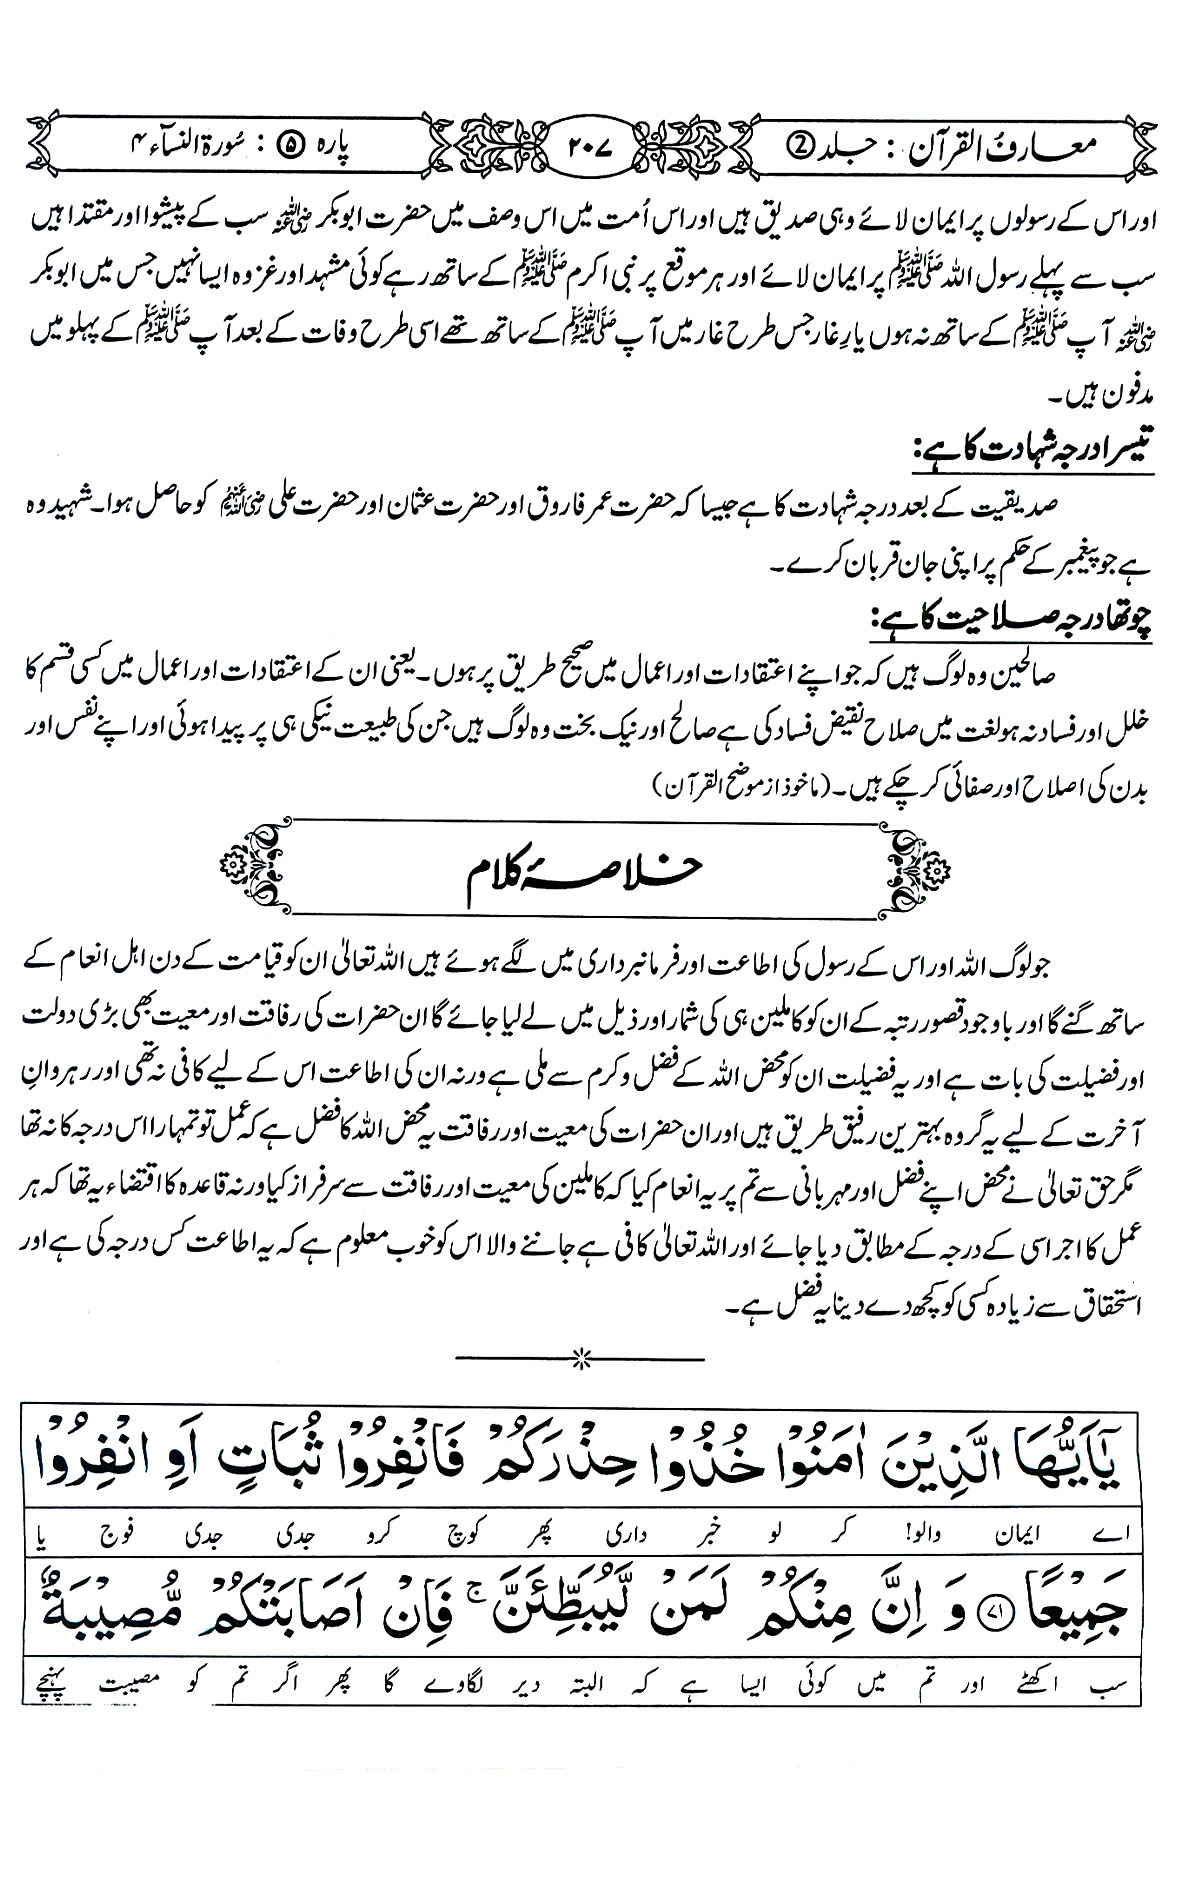 معارفُ القرآن : جلد ②
۲۰۷
پارہ ⑤ : سُورۃ النسآء ۴
اور اس کے رسولوں پر ایمان لائے وہی صدیق ہیں اور اس اُمت میں اس وصف میں حضرت ابوبکر رضی اللہ عنہ سب کے پیشوا اور مقتدا ہیں
سب سے پہلے رسول اللہ ﷺ پر ایمان لائے اور ہر موقع پر نبی اکرم ﷺ کے ساتھ رہے کوئی مشہد اور غزوہ ایسا نہیں جس میں ابوبکر
رضی اللہ عنہ آپ ﷺ کے ساتھ نہ ہوں یارِ غار جس طرح غار میں آپ ﷺ کے ساتھ تھے اسی طرح وفات کے بعد آپ ﷺ کے پہلو میں
مدفون ہیں۔
تیسرا درجہ شہادت کا ہے:
صدیقیت کے بعد درجہ شہادت کا ہے جیسا کہ حضرت عمر فاروق اور حضرت عثمان اور حضرت علی رضی اللہ عنہم کو حاصل ہوا۔ شہید وہ
ہے جو پیغمبر کے حکم پر اپنی جان قربان کرے۔
چوتھا درجہ صلاحیت کا ہے:
صالحین وہ لوگ ہیں کہ جو اپنے اعتقادات اور اعمال میں صحیح طریق پر ہوں۔ یعنی ان کے اعتقادات اور اعمال میں کسی قسم کا
خلل اور فساد نہ ہو لغت میں صلاح نقیض فساد کی ہے صالح اور نیک بخت وہ لوگ ہیں جن کی طبیعت نیکی ہی پر پیدا ہوئی اور اپنے نفس اور
بدن کی اصلاح اور صفائی کر چکے ہیں۔ (ماخوذ از موضح القرآن)
خلاصۂ کلام
جو لوگ اللہ اور اس کے رسول کی اطاعت اور فرمانبرداری میں لگے ہوئے ہیں اللہ تعالیٰ ان کو قیامت کے دن اہل انعام کے
ساتھ گنے گا اور باوجود قصور رتبہ کے ان کو کاملین ہی کی شمار اور ذیل میں لے لیا جائے گا ان حضرات کی رفاقت اور معیت بھی بڑی دولت
اور فضیلت کی بات ہے اور یہ فضیلت ان کو محض اللہ کے فضل و کرم سے ملی ہے ورنہ ان کی اطاعت اس کے لیے کافی نہ تھی اور رہروانِ
آخرت کے لیے یہ گروہ بہترین رفیق طریق ہیں اور ان حضرات کی معیت اور رفاقت یہ محض اللہ کا فضل ہے کہ عمل تو تمہارا اس درجہ کا نہ تھا
مگر حق تعالیٰ نے محض اپنے فضل اور مہربانی سے تم پر یہ انعام کیا کہ کاملین کی معیت اور رفاقت سے سرفراز کیا ورنہ قاعدہ کا اقتضاء یہ تھا کہ ہر
عمل کا اجر اسی کے درجہ کے مطابق دیا جائے اور اللہ تعالیٰ کافی ہے جاننے والا اس کو خوب معلوم ہے کہ یہ اطاعت کس درجہ کی ہے اور
استحقاق سے زیادہ کسی کو کچھ دے دینا یہ فضل ہے۔
یٰۤاَیُّهَا الَّذِیْنَ اٰمَنُوْا خُذُوْا حِذْرَكُمْ فَانْفِرُوْا ثُبَاتٍ اَوِ انْفِرُوْا
اے ایمان والو! کر لو خبر داری پھر کوچ کرو جدی جدی فوج یا
جَمِیْعًا ۝۷۱ وَ اِنَّ مِنْكُمْ لَمَنْ لَّیُبَطِّئَنَّ ۚ فَاِنْ اَصَابَتْكُمْ مُّصِیْبَةٌ
سب اکھٹے اور تم میں کوئی ایسا ہے کہ البتہ دیر لگاوے گا پھر اگر تم کو مصیبت پہنچے